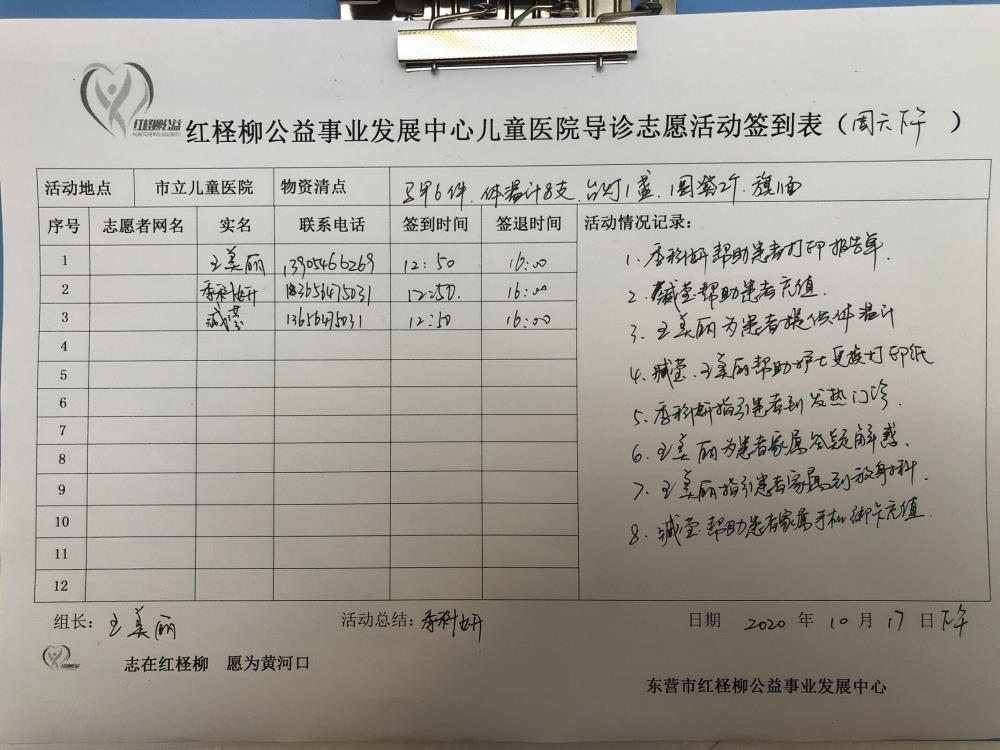 红柽柳公益
红柽柳公益事业发展中心儿童医院导诊志愿活动签到表（周六下午 ）
活动地点 市立儿童医院 物资清点 马甲6件.体温计8支.台灯1盏.旗1面
序号 志愿者网名 实名 联系电话 签到时间 签退时间 活动情况记录：
1 王美丽 13905466269 12:50 16:00
2 季科妍 13656475031 12:50. 16:00
3 臧莹 13656475031 12:50 16:00
4
5
6
7
8
9
10
11
12
1. 季科妍帮助患者打印报告单.
2. 臧莹帮助患者充值.
3. 王美丽为患者提供体温计
4. 臧莹.王美丽帮助护士更换打印纸
5. 季科妍指引患者到发热门诊.
6. 王美丽为患者家属答疑解惑.
7. 王美丽指引患者家属到放射科.
8. 臧莹帮助患者家属手机御卡充值.
组长：王美丽 活动总结：季科妍 日期 2020 年 10 月 17 日下午
志在红柽柳 愿为黄河口
东营市红柽柳公益事业发展中心